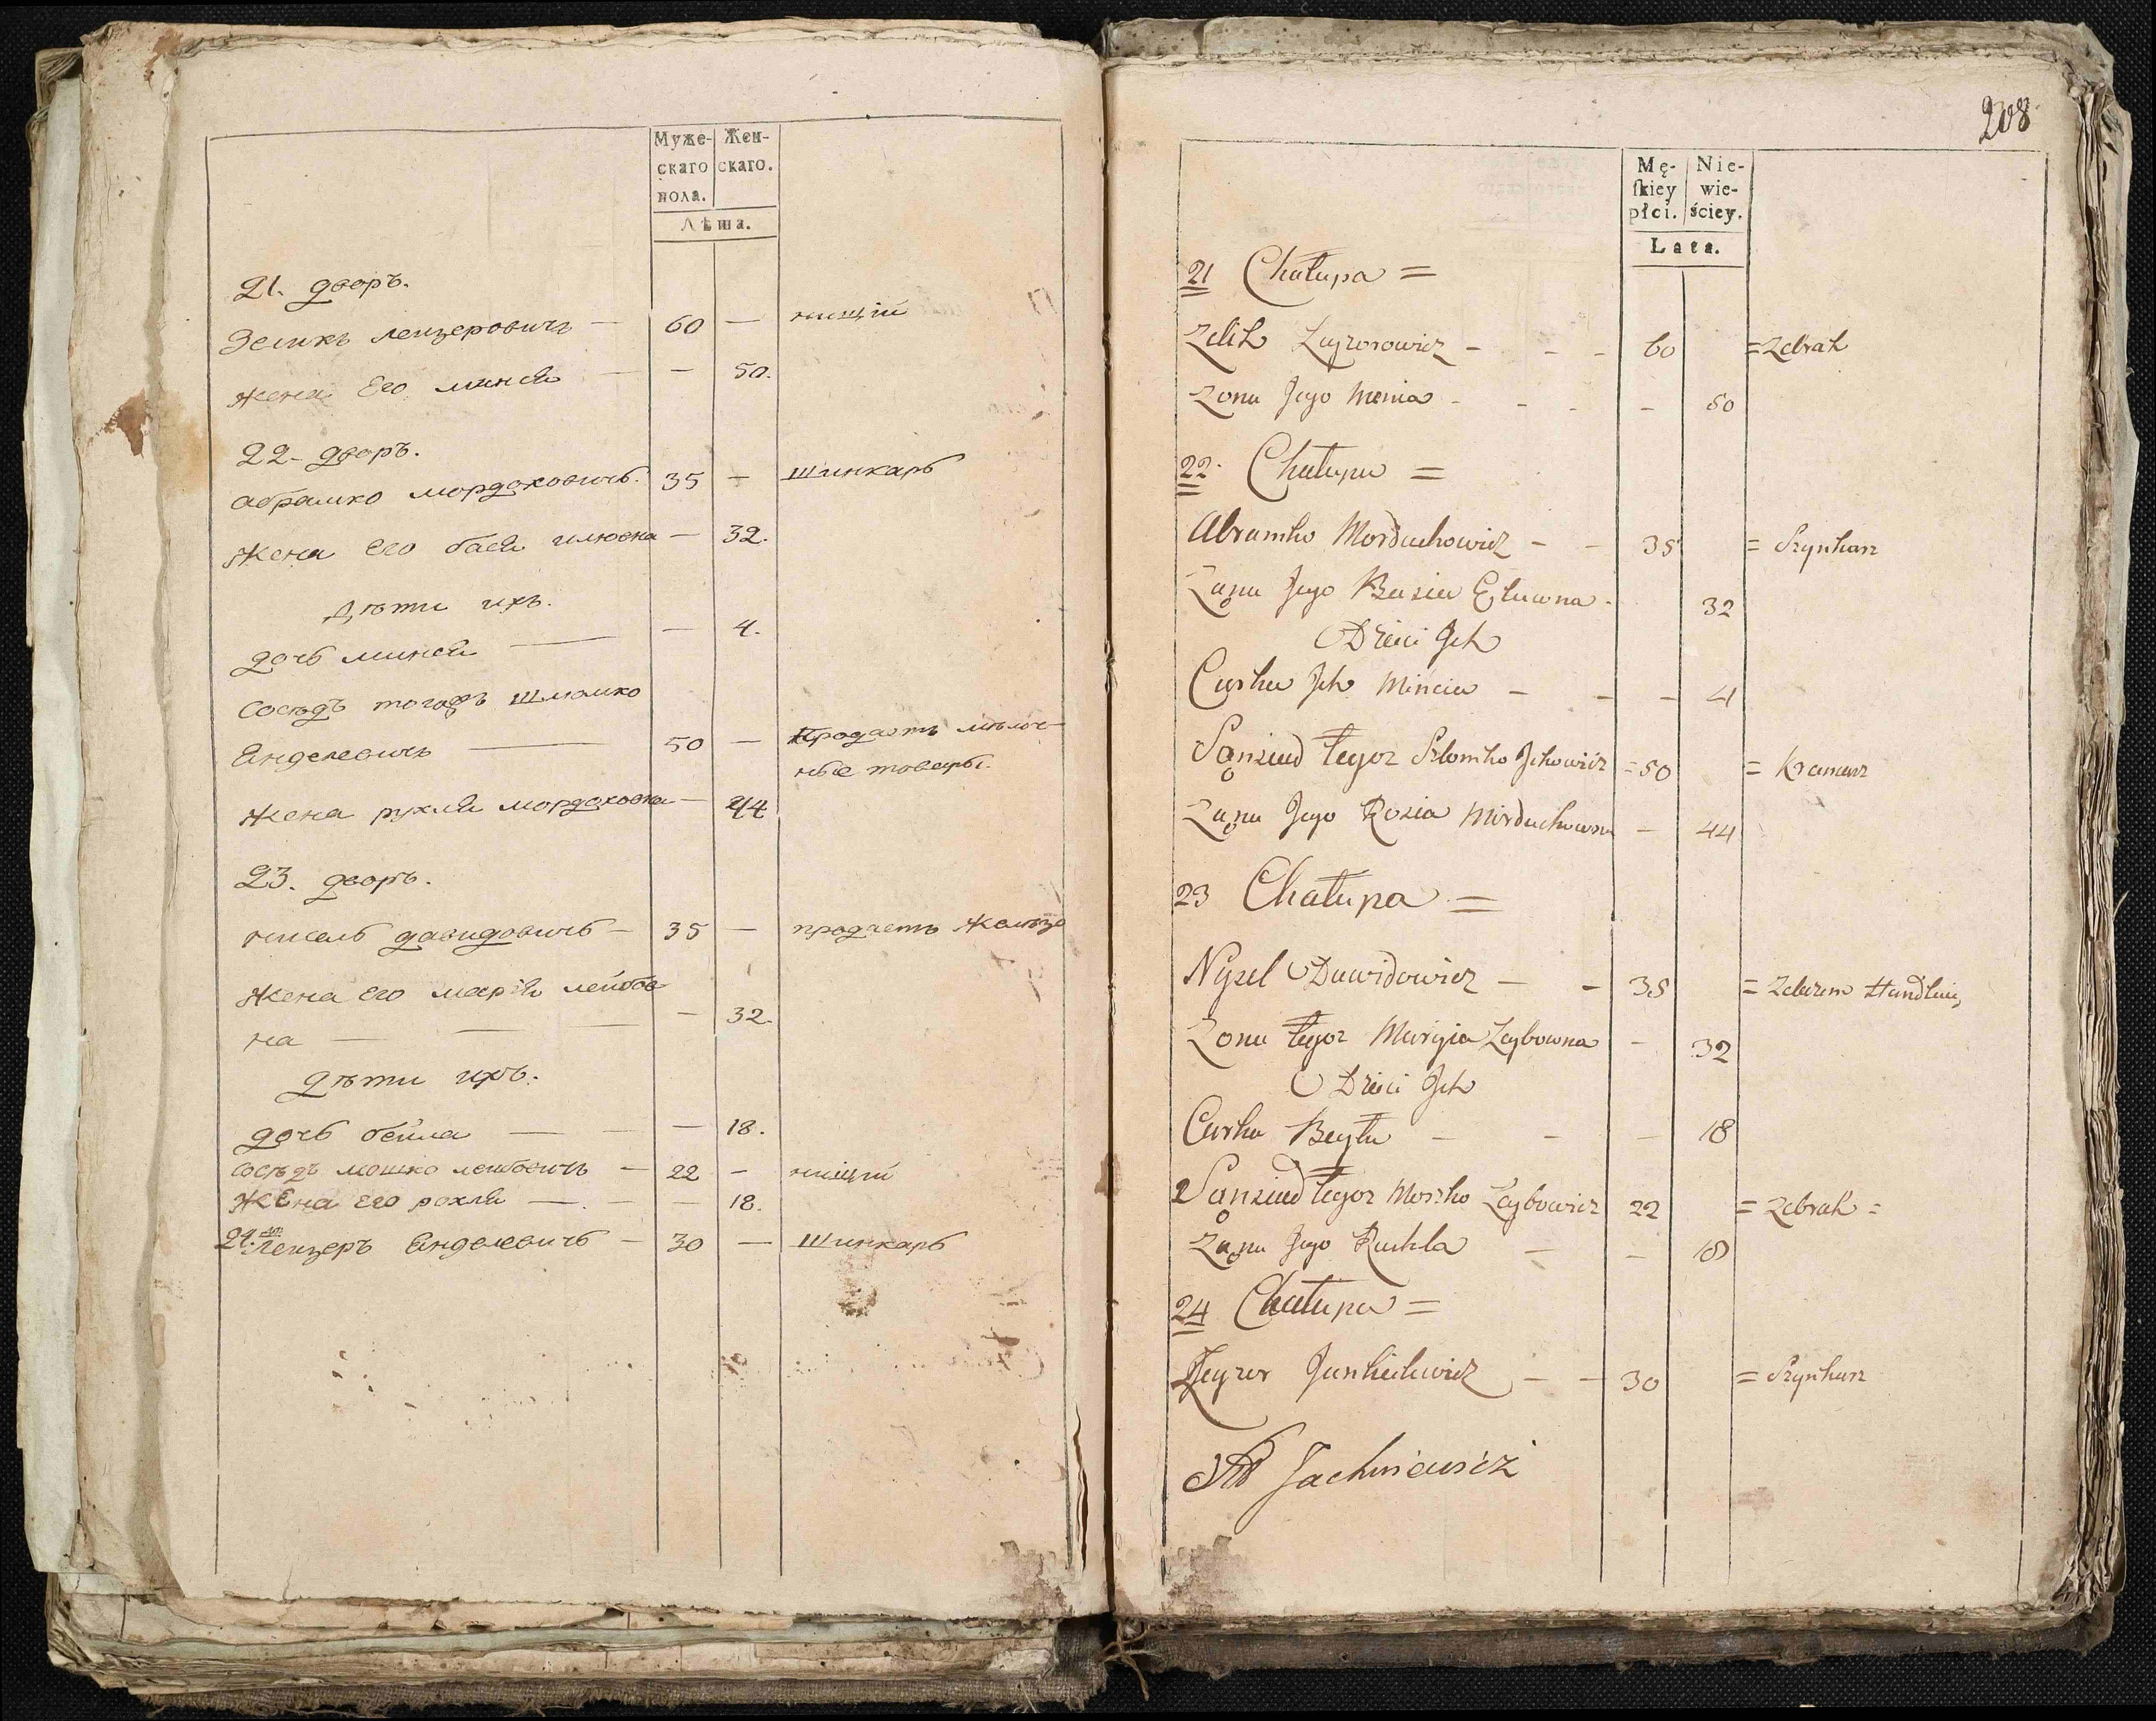 Муже-
скаго
пола.
Жен-
скаго.
Лѣта.
21. дворъ.
Зеликъ лейзеровичъ — 60 — нищій
жена Его минея — — 50.
22- дворъ.
абрамко мордоховичъ. 35 — шинкарь
жена Его бася илювна — 32.
Дѣти ихъ.
дочь минея — — 4.
Сосѣдъ тогожъ шлиомко
Янделевичъ — 50 — продаетъ мѣлоч-
ные товары.
жена рухля мордоховна — 44
23. дворъ.
нисель давидовичъ — 35 — продаетъ желѣзо
жена Его марія лейбов
на — — — 32.
дѣти ихъ.
дочь бейла — — — 18.
сосѣдъ мошко лейбовичъ — 22 — нищій
жена Его рохля — . — — 18.
24. лейзеръ Янделевичъ — 30 — Шинкарь
208
Mę-
skiey
płci.
Nie-
wie-
ściey.
Lata.
21 Chałupa =
Zelik Layzorowicz - - - 60 = Zebrak
Zona Jego Menia - - - - 50
22. Chałupa =
Abramko Morduchowicz - - 35 = Szynkarz
Zona Jego Basia Eluwna - 32
Dzieci Ich
Curka Ich Mincia - - - 4
Sąnsiad tegoz Szlomko Ickowicz = 50 = Kramarz
Zona Jego Rozia Morduchowna - 44
23 Chałupa =
Nysel Dawidowicz - - 35 = Zelazem Handluie
Zona tegoz Maryia Leybowna - 32
Dzieci Ich
Curka Beyła - - - 18
Sąnsiad tegoz Moszko Leybowicz 22 = Zebrak =
Zona Jego Ruchla - - 18
24 Chałupa =
Leyzer Jankielewicz - - 30 = Szynkarz
Jachniewicz